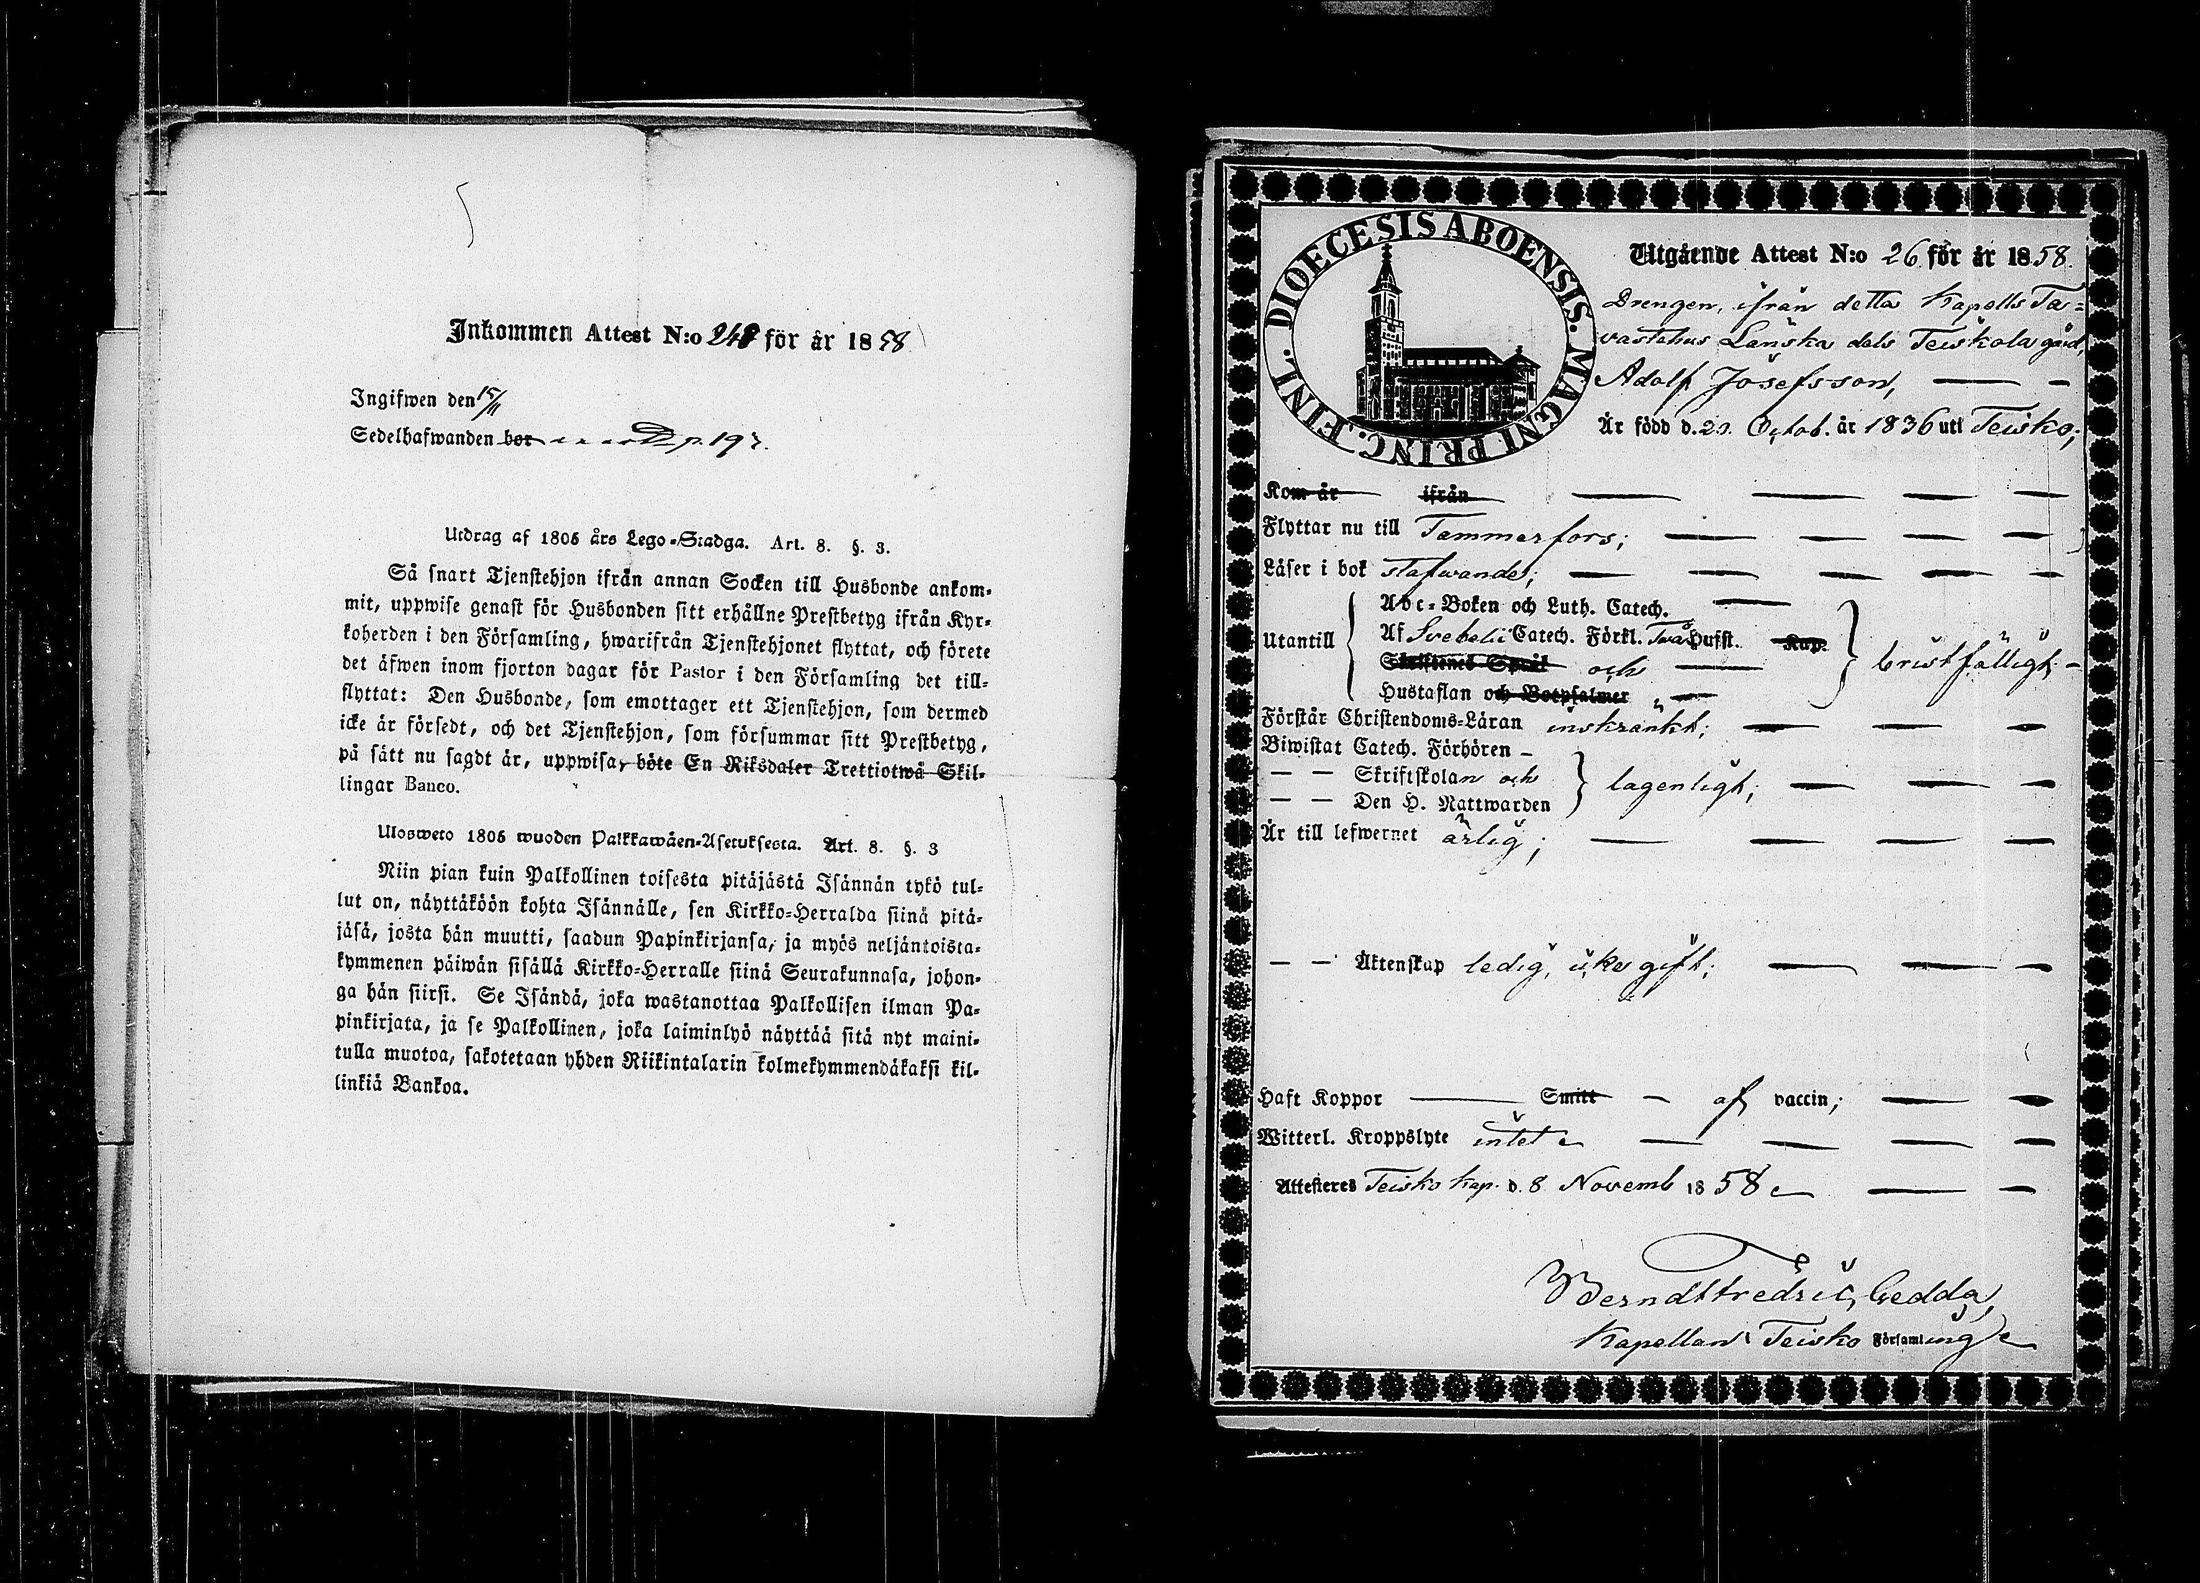 Inkommen Attest N:o 248 för år 1858
Ingifwen den 15/11
Sedelhafwanden bor p. 193.
Utdrag af 1805 års Lego-Stadga. Art. 8. §. 3.
Så snart Tjenstehjon ifrån annan Socken till Husbonde ankom-
mit, uppwise genast för Husbonden sitt erhållne Prestbetyg ifrån Kyr-
koherden i den Församling, hwarifrån Tjenstehjonet flyttat, och förete
det äfwen inom fjorton dagar för Pastor i den Församling det till-
flyttat: Den Husbonde, som emottager ett Tjenstehjon, som dermed
icke är försedt, och det Tjenstehjon, som försummar sitt Prestbetyg,
på sätt nu sagdt är, uppwisa, böte En Riksdaler Trettiotwå Skil-
lingar Banco.
Ulosweto 1805 wuoden Palkkawäen-Asetuksesta. Art. 8. §. 3
Niin pian kuin Palkollinen toisesta pitäjästä Isännän tykö tul-
lut on, näyttäköön kohta Isännälle, sen Kirkko-Herralda siinä pitä-
jäsä, josta hän muutti, saadun Papinkirjansa, ja myös neljäntoista-
kymmenen päiwän sisällä Kirkko-Herralle siinä Seurakunnasa, johon-
ga hän siirsi. Se Isändä, joka wastanottaa Palkollisen ilman Pa-
pinkirjata, ja se Palkollinen, joka laiminlyö näyttää sitä nyt maini-
tulla muotoa, sakotetaan yhden Riikintalarin kolmekymmendäkaksi kil-
linkiä Bankoa.
DIOECESIS ABOENSIS. MAGNI PRINC. FINL.
Utgående Attest N:o 26 för år 1858.
Drengen, ifrån detta Kapells Ta-
vastehus Länska dels Teiskola gård,
Adolf Josefsson,
Är född d. 29. Octob. år 1836 uti Teisko;
Kom år ifrån
Flyttar nu till Tammerfors;
Läser i bok stafwande;
Utantill
Abc-Boken och Luth. Catech.
Af Svebelii Catech. Förkl. Två Hufst. Kap.
Skriftenes Språk och
Hustaflan och Botpsalmer
bristfälligt;
Förstår Christendoms-Läran inskränkt;
Biwistat Catech. Förhören
— — Skriftskolan och
— — Den H. Nattwarden
lagenligt;
Är till lefwernet ärlig;
— — Äktenskap ledig, icke gift;
Haft Koppor Smitt af vaccin;
Witterl. Kroppslyte intet
Attesteres Teisko Kap. d. 8 Novemb 1858
Berndt Fredric Gedda,
Kapellan i Teisko Församling